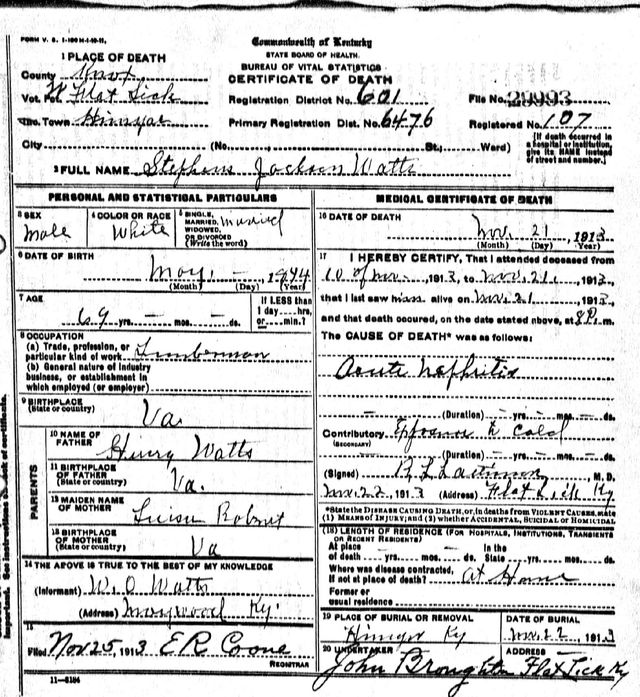 FORM V. S. 1-
Commonwealth of Kentucky
STATE BOARD OF HEALTH.
BUREAU OF VITAL STATISTICS
CERTIFICATE OF DEATH
1 PLACE OF DEATH
County Knox
Vot. Pct. Flat Lick
Inc. Town Himyar
City (No. St., Ward)
Registration District No. 601
Primary Registration Dist. No. 6476
File No. 29993
Registered No. 107
[If death occurred in
a hospital or institution,
give its NAME instead
of street and number.]
2 FULL NAME Stephen Jackson Watts
PERSONAL AND STATISTICAL PARTICULARS
3 SEX
Male
4 COLOR OR RACE
White
5 SINGLE,
MARRIED,
WIDOWED,
OR DIVORCED
(Write the word)
Married
6 DATE OF BIRTH
May, — , 1844
(Month) (Day) (Year)
7 AGE
69 yrs. — mos. — ds.
If LESS than
1 day....hrs.
or.....min.?
8 OCCUPATION
(a) Trade, profession, or
particular kind of work Timberman
(b) General nature of industry
business, or establishment in
which employed (or employer)
9 BIRTHPLACE
(State or country)
Va.
PARENTS
10 NAME OF
FATHER
Henry Watts
11 BIRTHPLACE
OF FATHER
(State or country)
Va.
12 MAIDEN NAME
OF MOTHER
13 BIRTHPLACE
OF MOTHER
(State or country)
Va
14 THE ABOVE IS TRUE TO THE BEST OF MY KNOWLEDGE
(Informant) W. O Watts
(Address) Maywood Ky.
15
Filed Nov 25, 1913 E R Coone
REGISTRAR
11—5184
MEDICAL CERTIFICATE OF DEATH
16 DATE OF DEATH
Nov. 21 , 1913
(Month) (Day) (Year)
17 I HEREBY CERTIFY, That I attended deceased from
10 of Nov. , 1913, to Nov. 21. , 1913,
that I last saw him alive on Nov. 21 , 1913,
and that death occured, on the date stated above, at 8 P. m.
The CAUSE OF DEATH* was as follows:
Acute Nephritis
— (Duration) — yrs. — mos. — ds.
Contributory Exposure to Cold
(SECONDARY)
— (Duration) — yrs. — mos. — ds.
(Signed) M. D.
Nov. 22, 1913 (Address) Flat Lick Ky
*State the DISEASE CAUSING DEATH, or, in deaths from VIOLENT CAUSES, state
(1) MEANS OF INJURY; and (2) whether ACCIDENTAL, SUICIDAL or HOMICIDAL
(18) LENGTH OF RESIDENCE (FOR HOSPITALS, INSTITUTIONS, TRANSIENTS
OR RECENT RESIDENTS)
At place
of death yrs. mos. ds.
In the
State yrs. mos. ds.
Where was disease contracted,
If not at place of death? At Home
Former or
usual residence
19 PLACE OF BURIAL OR REMOVAL
Himyar Ky
DATE OF BURIAL
Nov. 22 , 1913
20 UNDERTAKER
John Broughton
ADDRESS
Flat Lick Ky